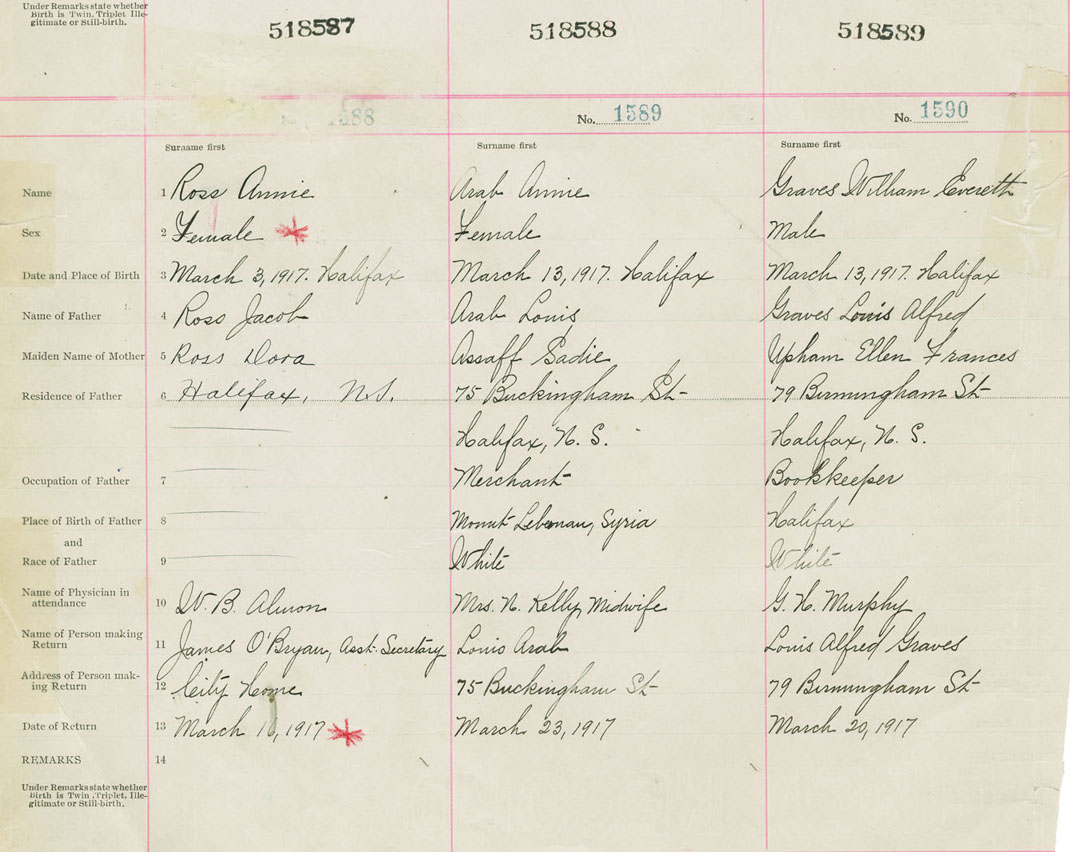 Under Remarks state whether
Birth is Twin, Triplet, Ille-
gitimate or Still-birth.
518587 518588 518589
1588 No. 1589 No. 1590
Surname first Surname first Surname first
Name 1 Ross Annie Arab Annie Graves William Evereth
Sex 2 Female Female Male
Date and Place of Birth 3 March 3, 1917. Halifax March 13, 1917. Halifax March 13, 1917. Halifax
Name of Father 4 Ross Jacob Arab Louis Graves Louis Alfred
Maiden Name of Mother 5 Ross Dora Assaff Sadie Upham Ellen Frances
Residence of Father 6 Halifax, N.S. 75 Buckingham St 79 Birmingham St
Halifax, N. S. Halifax, N. S.
Occupation of Father 7 Merchant Bookkeeper
Place of Birth of Father 8 Mount Lebenan, Syria Halifax
and
Race of Father 9 White White
Name of Physician in
attendance 10 W. B. Almon Mrs. N. Kelly, Midwife G. H. Murphy
Name of Person making
Return 11 James O'Bryan, Asst. Secretary Louis Arab Louis Alfred Graves
Address of Person mak-
ing Return 12 City Home 75 Buckingham St 79 Birmingham St
Date of Return 13 March 1917 March 23, 1917 March 20, 1917
REMARKS 14
Under Remarks state whether
Birth is Twin, Triplet, Ille-
gitimate or Still-birth.